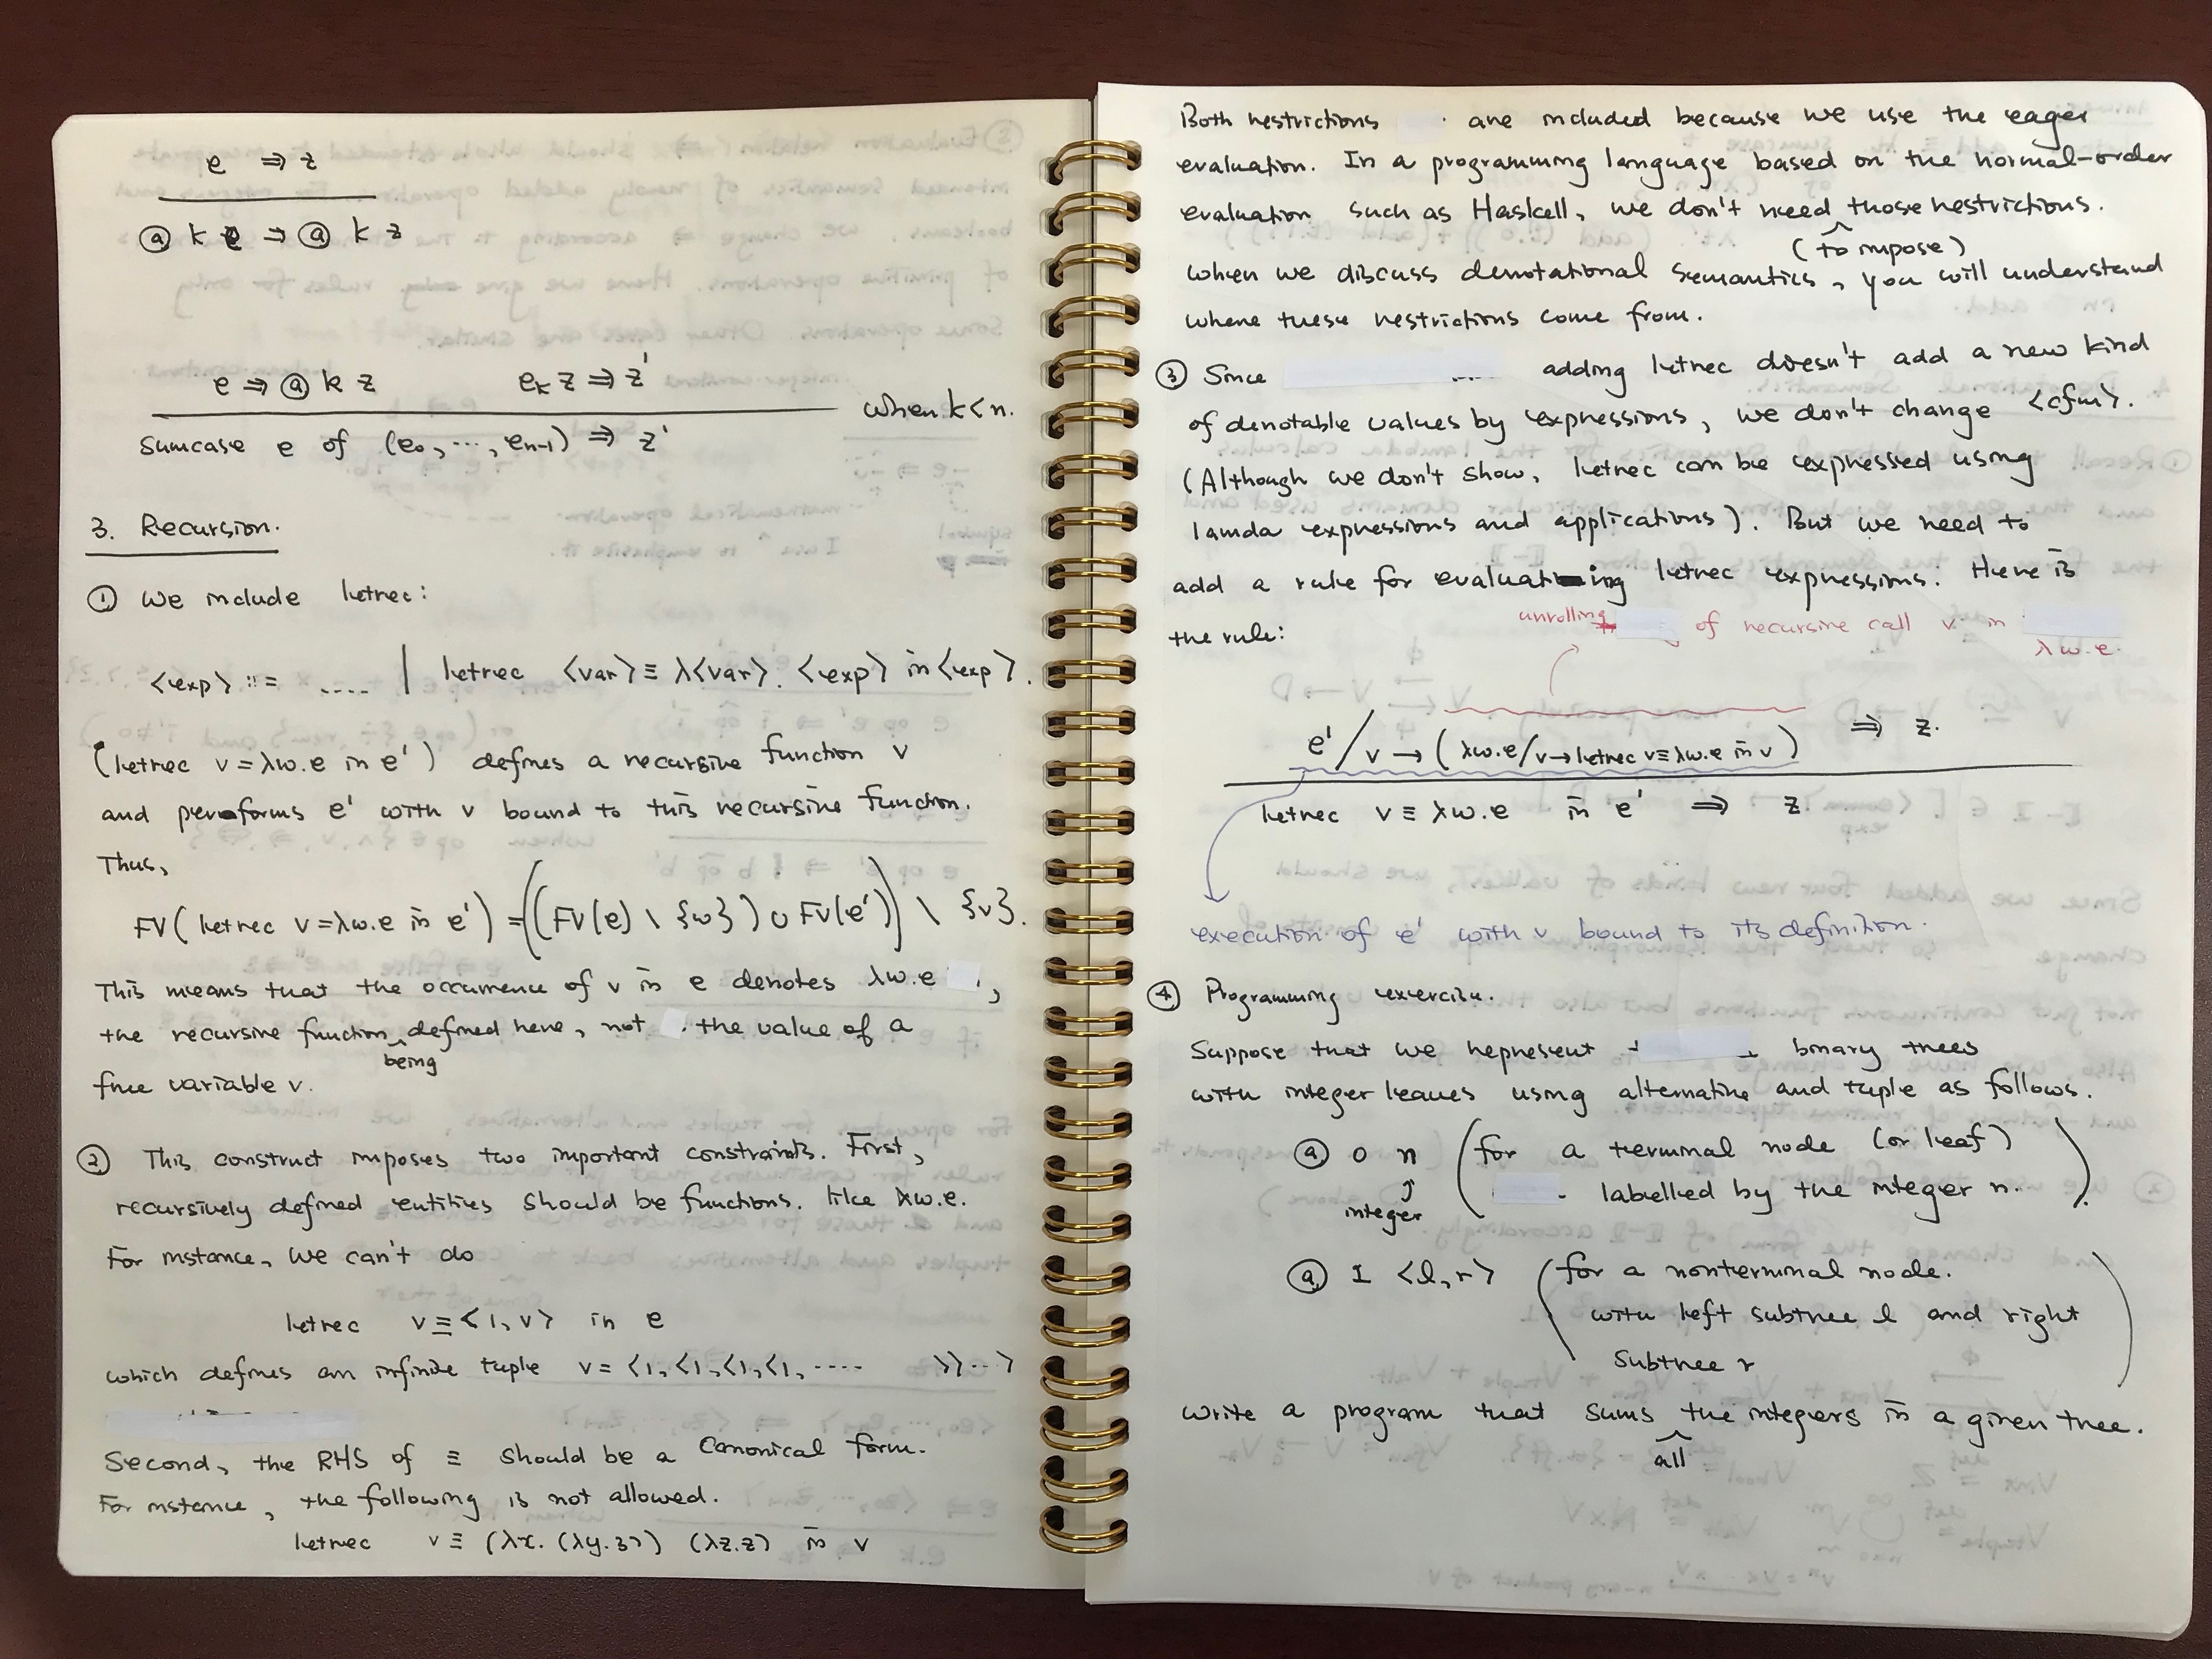 e ⇒ z
ⓐ k e ⇒ ⓐ k z
e ⇒ ⓐ k z    e_k z ⇒ z'
when k<n.
sumcase e of (e₀, ..., eₙ₋₁) ⇒ z'
3. Recursion.
① We include letrec:
<exp> ::= .... | letrec <var> ≡ λ<var>. <exp> in <exp>.
(letrec v = λw.e in e') defines a recursive function v
and performs e' with v bound to this recursive function.
Thus,
FV(letrec v=λw.e in e') = ((FV(e) \ {w}) ∪ FV(e')) \ {v}.
This means that the occurrence of v in e denotes λw.e ,
the recursive function being defined here, not the value of a
free variable v.
② This construct imposes two important constraints. First,
recursively defined entities should be functions. like λw.e.
For instance, we can't do
letrec v ≡ <1, v> in e
which defines an infinite tuple v = <1, <1, <1, <1, ..... >>...>
Second, the RHS of ≡ should be a canonical form.
For instance, the following is not allowed.
letrec v ≡ (λx. (λy.3)) (λz.z) in v
Both restrictions are included because we use the eager
evaluation. In a programming language based on the normal-order
evaluation such as Haskell, we don't need (to impose) those restrictions.
When we discuss denotational semantics, you will understand
where these restrictions come from.
③ Since adding letrec doesn't add a new kind
of denotable values by expressions, we don't change <cfm>.
(Although we don't show, letrec can be expressed using
lamda expressions and applications). But we need to
add a rule for evaluating letrec expressions. Here is
the rule:
unrolling of recursive call v in
λw.e.
e'/v → (λw.e/v→letrec v≡λw.e in v) ⇒ z.
letrec v ≡ λw.e in e' ⇒ z.
execution of e' with v bound to its definition.
④ Programming exercise.
Suppose that we represent binary trees
with integer leaves using alternative and tuple as follows.
ⓐ 0 n (for a terminal node (or leaf)
integer
labelled by the integer n. ).
ⓐ 1 <l, r> (for a nonterminal node.
with left subtree l and right
subtree r )
Write a program that sums all the integers in a given tree.